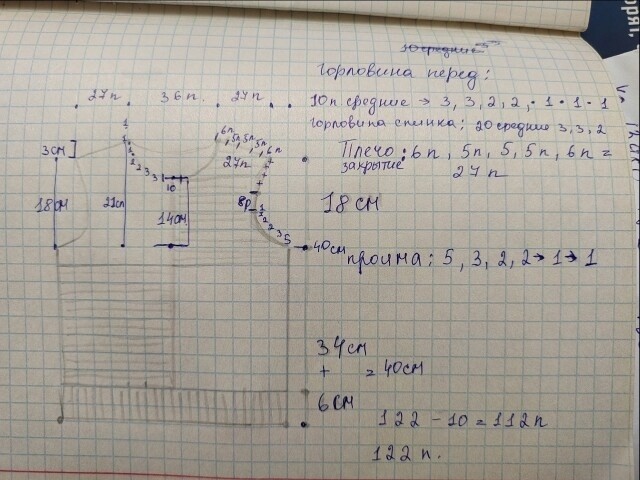 10 средние
горловина перед:
10п средние → 3, 3, 2, 2, · 1 · 1 · 1
горловина спинка; 20 средние 3, 3, 2
Плечо: 6п, 5п, 5, 5п, 6п =
закрытие
27п
18см
пройма: 5, 3, 2, 2 → 1 → 1
34см
+ = 40см
6см
122 - 10 = 112п
122п.
27п
36п.
27п
3см
18см
21сп
14см
10
1
1
2
3
3
1
6п
5п
5п
5п
6п
27п
8р
1
2
2
3
5
40см